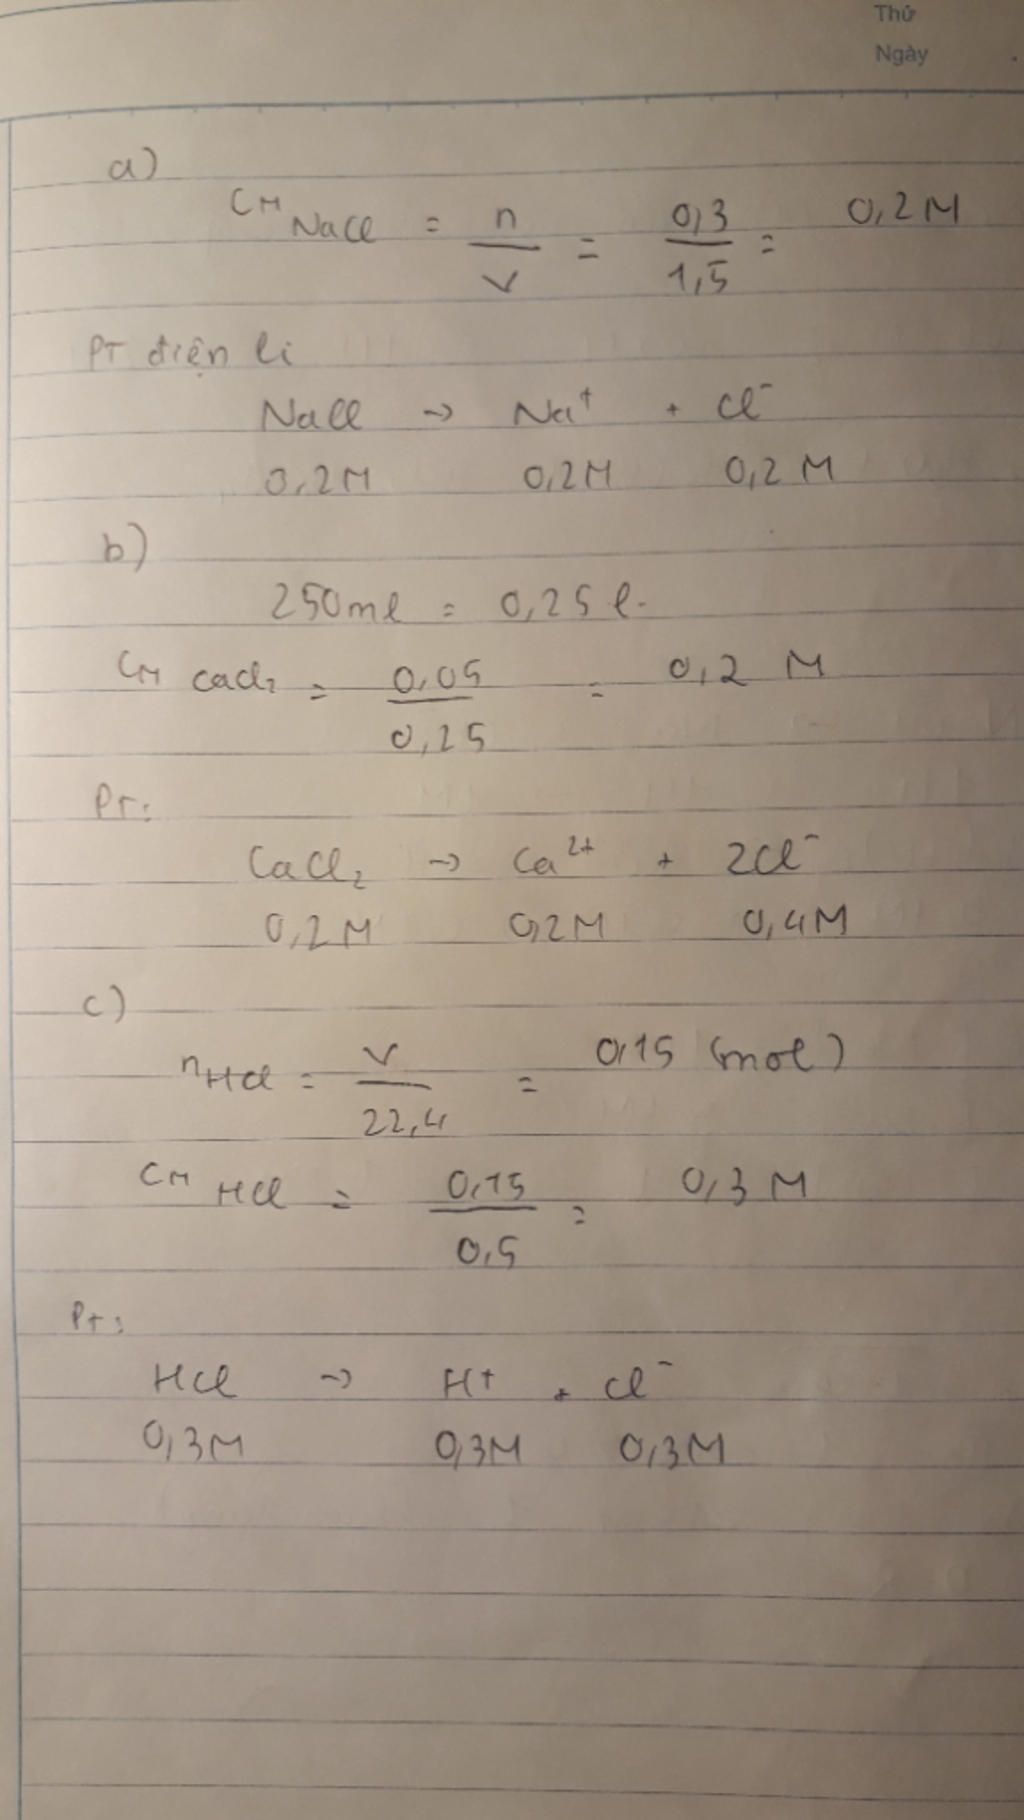 Thứ
Ngày
a)
CM NaCl = n / V = 0,3 / 1,5 = 0,2M
PT điện li
NaCl → Na⁺ + Cl⁻
0,2M 0,2M 0,2M
b)
250ml = 0,25l.
CM CaCl₂ = 0,05 / 0,25 = 0,2 M
PT:
CaCl₂ → Ca²⁺ + 2Cl⁻
0,2M 0,2M 0,4M
c)
nHCl = V / 22,4 = 0,15 (mol)
CM HCl = 0,15 / 0,5 = 0,3M
Pt:
HCl → H⁺ + Cl⁻
0,3M 0,3M 0,3M